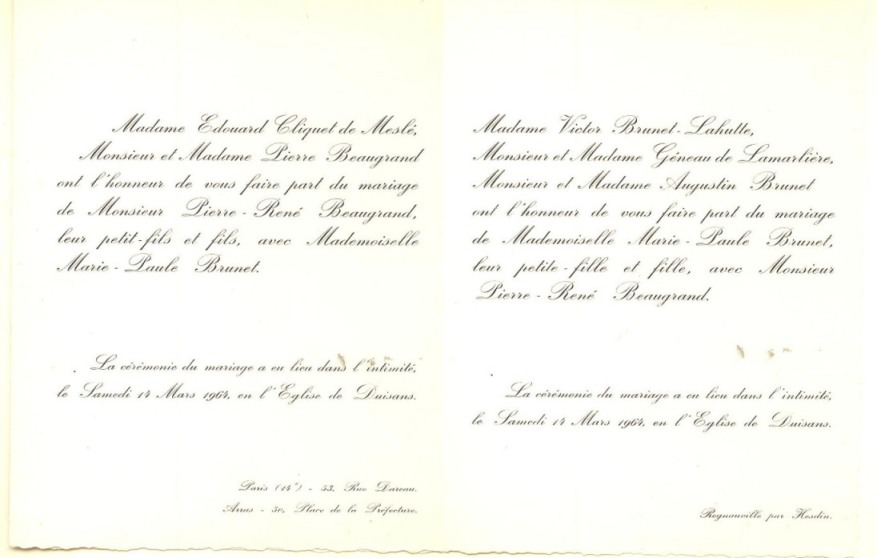 Madame Edouard Cliquet de Meslé,
Monsieur et Madame Pierre Beaugrand
ont l'honneur de vous faire part du mariage
de Monsieur Pierre-René Beaugrand,
leur petit-fils et fils, avec Mademoiselle
Marie-Paule Brunet.
La cérémonie du mariage a eu lieu dans l'intimité,
le Samedi 14 Mars 1964, en l'Eglise de Duisans.
Paris (14e) - 53, Rue Dareau.
Arras - Place de la Préfecture.
Madame Victor Brunet-Lahutte,
Monsieur et Madame Géneau de Lamarlière,
Monsieur et Madame Augustin Brunet
ont l'honneur de vous faire part du mariage
de Mademoiselle Marie-Paule Brunet,
leur petite-fille et fille, avec Monsieur
Pierre-René Beaugrand.
La cérémonie du mariage a eu lieu dans l'intimité,
le Samedi 14 Mars 1964, en l'Eglise de Duisans.
Regnauville par Hesdin.